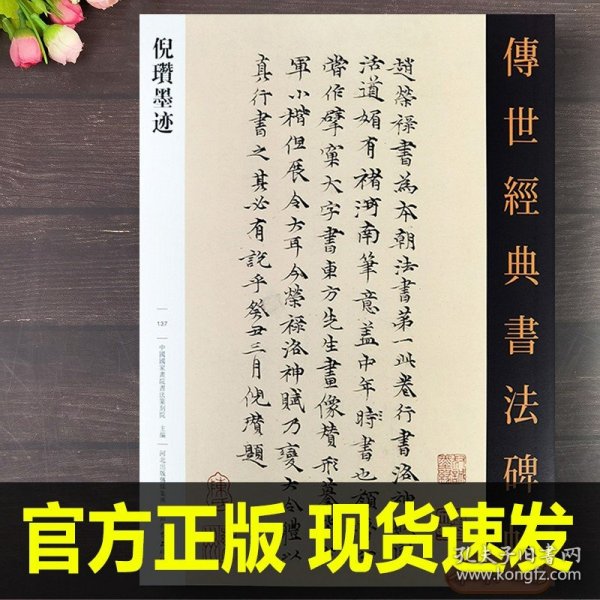 傳世經典書法碑
趙榮祿書為本朝法書第一此卷行書洛神
活遒媚有褚河南筆意蓋中年時書也頗
嘗作擘窠大字書東方先生畫像贊形
軍小楷但展令大耳今榮祿洛神賦乃變大令體以
真行書之其必有說乎癸丑三月倪瓚題
倪瓚墨迹
137
中國國家書院書法篆刻院 主編
河北出版傳媒集
官方正版 现货速发
孔夫子旧书网
www.kongfz.com